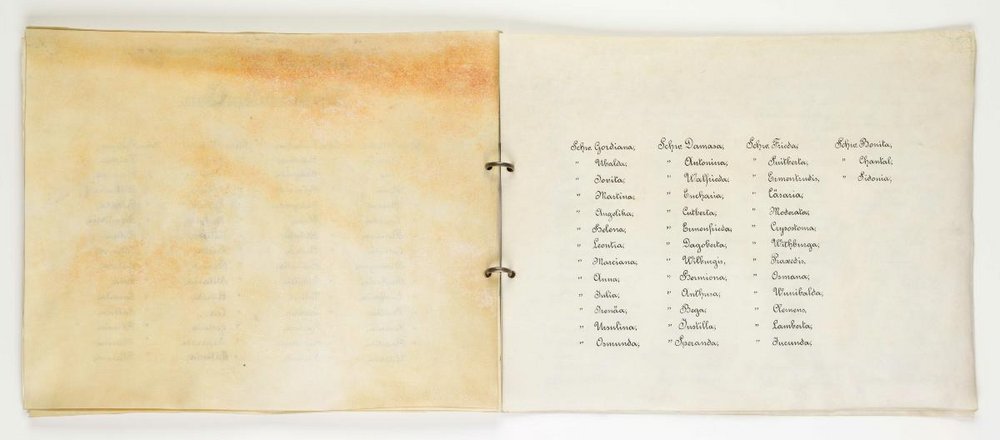 Schw. Gordiana, Schw. Damasa, Schw. Frieda, Schw. Bonita,
" Ubalda, " Antonina, " Suitberta, " Chantal,
" Jovita, " Walfrieda, " Ermentrudis, " Sidonia,
" Martina, " Eucharia, " Cäsaria,
" Angelika, " Cutberta, " Moderata,
" Helena, " Ermenfrieda, " Crysostoma,
" Leontia, " Dagoberta, " Withburga,
" Marciana, " Wilburgis, " Praxedis,
" Anna, " Hermiona, " Osmana,
" Julia, " Anthusa, " Wunibalda,
" Irenäa, " Bega, " Clemens,
" Ursulina, " Justilla, " Lamberta,
" Osmunda, " Speranda, " Jucunda,